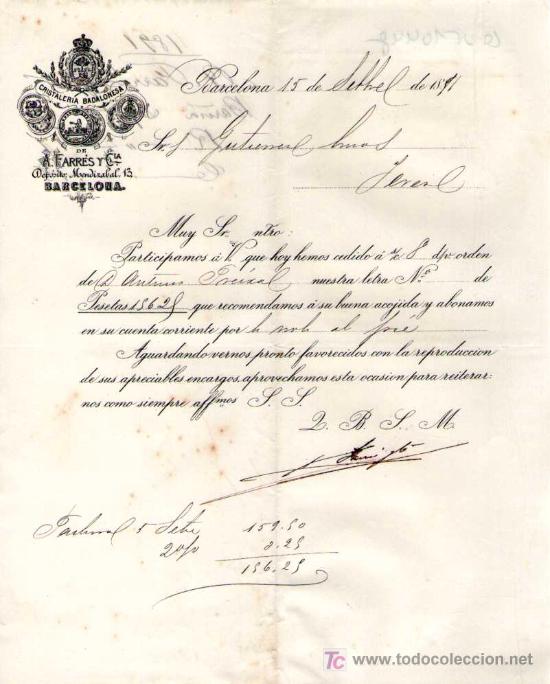 CRISTALERIA BADALONESA
DE
A. FARRÉS Y Cía
Depósito, Mendizabal, 13.
BARCELONA.
1891
Barcelona 15 de Setbre de 1891
Srs Gutierrez Hnos
Jerez
Muy Sr. ntro:
Participamos á V. que hoy hemos cedido á 8 d/v. orden
de D. Antonio nuestra letra Nº de
Pesetas 156.25 que recomendamos á su buena acojida y abonamos
en su cuenta corriente por
Aguardando vernos pronto favorecidos con la reproduccion
de sus apreciables encargos, aprovechamos esta ocasion para reiterar-
nos como siempre affmos S. S.
Q. B. S. M.
Factura 5 Setbre 159.50
2 o/o 3.25
156.25
TC
www.todocoleccion.net